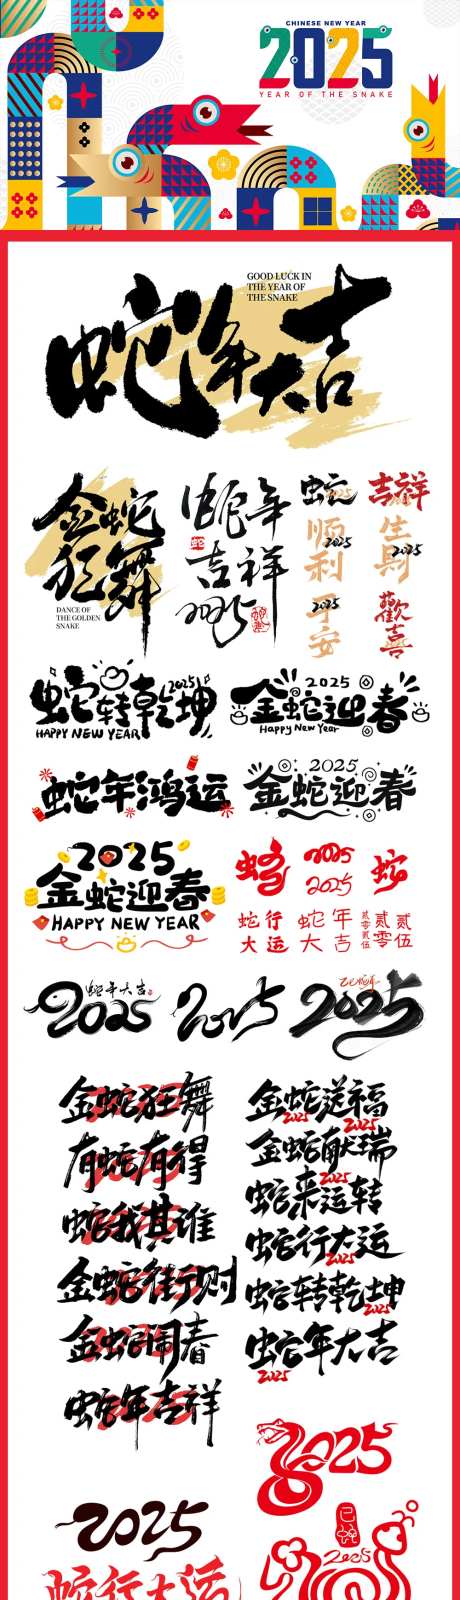 CHINESE NEW YEAR
2025
YEAR OF THE SNAKE
GOOD LUCK IN
THE YEAR OF
THE SNAKE
蛇年大吉
金蛇
狂舞
DANCE OF
THE GOLDEN
SNAKE
蛇年
吉祥
蛇
2025
順利
2025
平安
2025
吉祥
生財
2025
歡喜
蛇转乾坤
2025
HAPPY NEW YEAR
2025
金蛇迎春
Happy New Year
蛇年鸿运
2025
金蛇迎春
2025
金蛇迎春
HAPPY NEW YEAR
蛇
2025
2025
蛇
蛇行
大运
蛇年
大吉
贰零贰伍
贰伍
贰零
蛇年大吉
2025
2025
2025
金蛇狂舞
有蛇有得
蛇我其谁
金蛇闹春
蛇年吉祥
金蛇送福
2025
2025
金蛇献瑞
2025
蛇来运转
蛇行大运
2025
蛇转乾坤
2025
蛇年大吉
2025
2025
2025
蛇行大运
2025